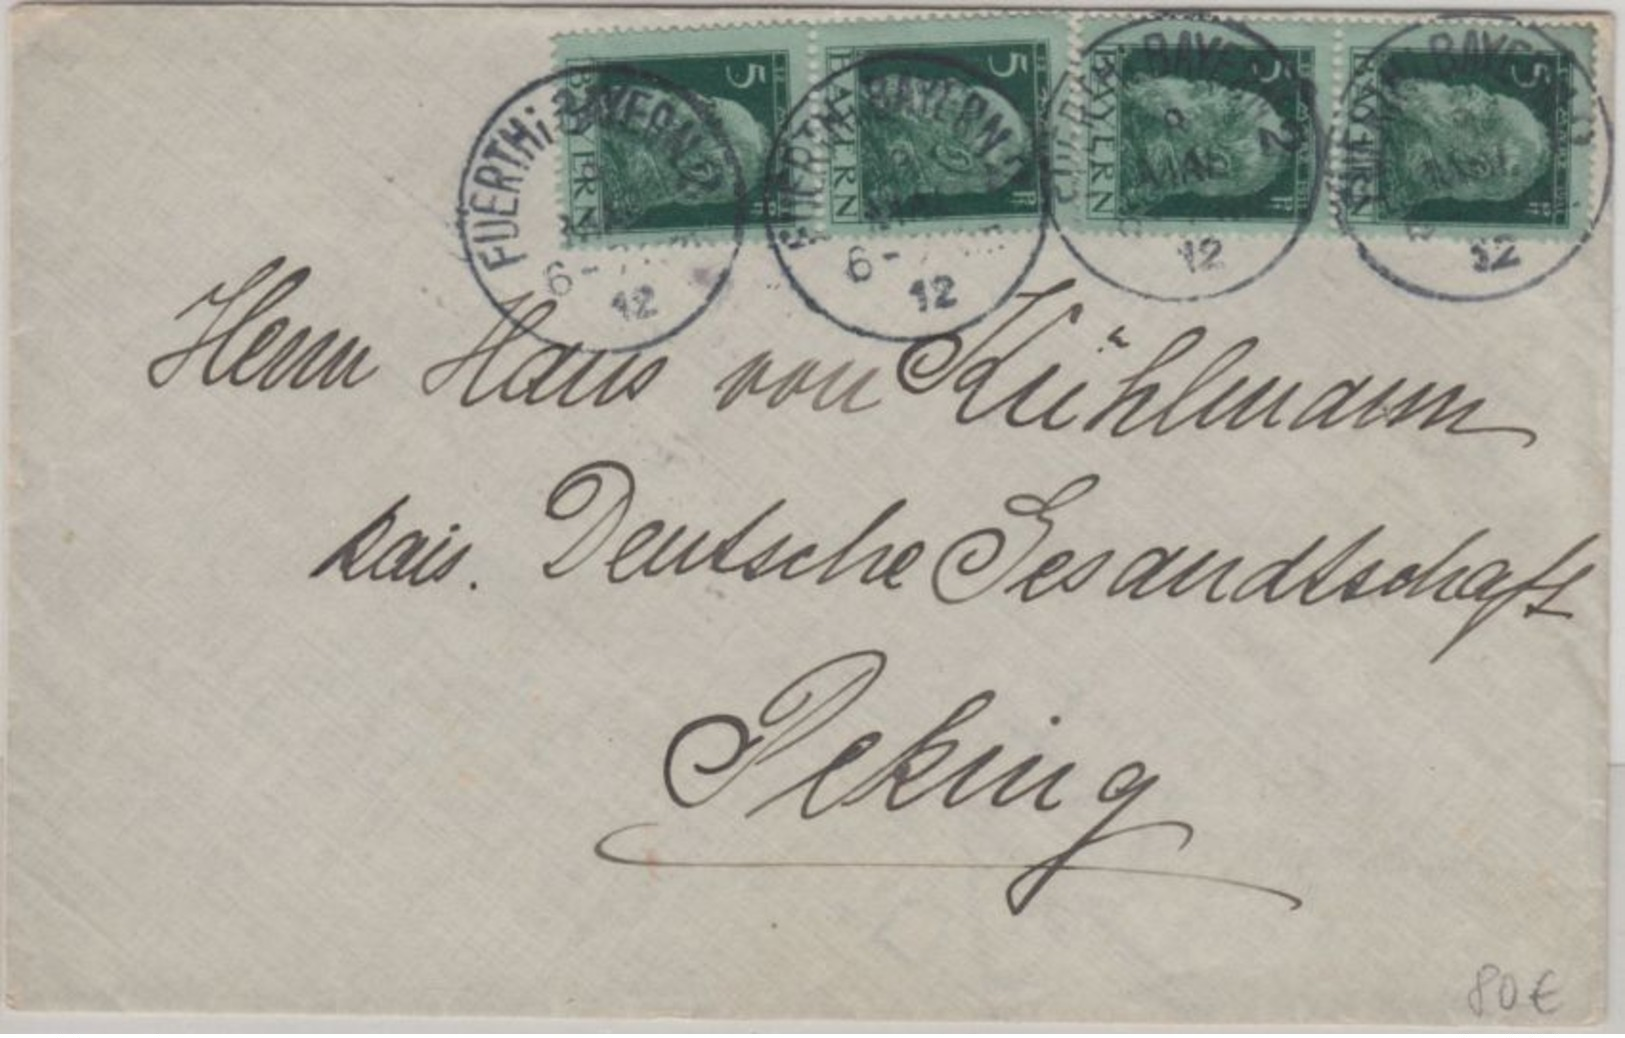 5 5 5 5
BAYERN BAYERN BAYERN BAYERN
FUERTH i. BAYERN 2
6-
12
BAYERN
6-
12
BAYERN 2
12
12
Herrn Hans von Kühlmann
kais. Deutsche Gesandtschaft
Peking
80 €